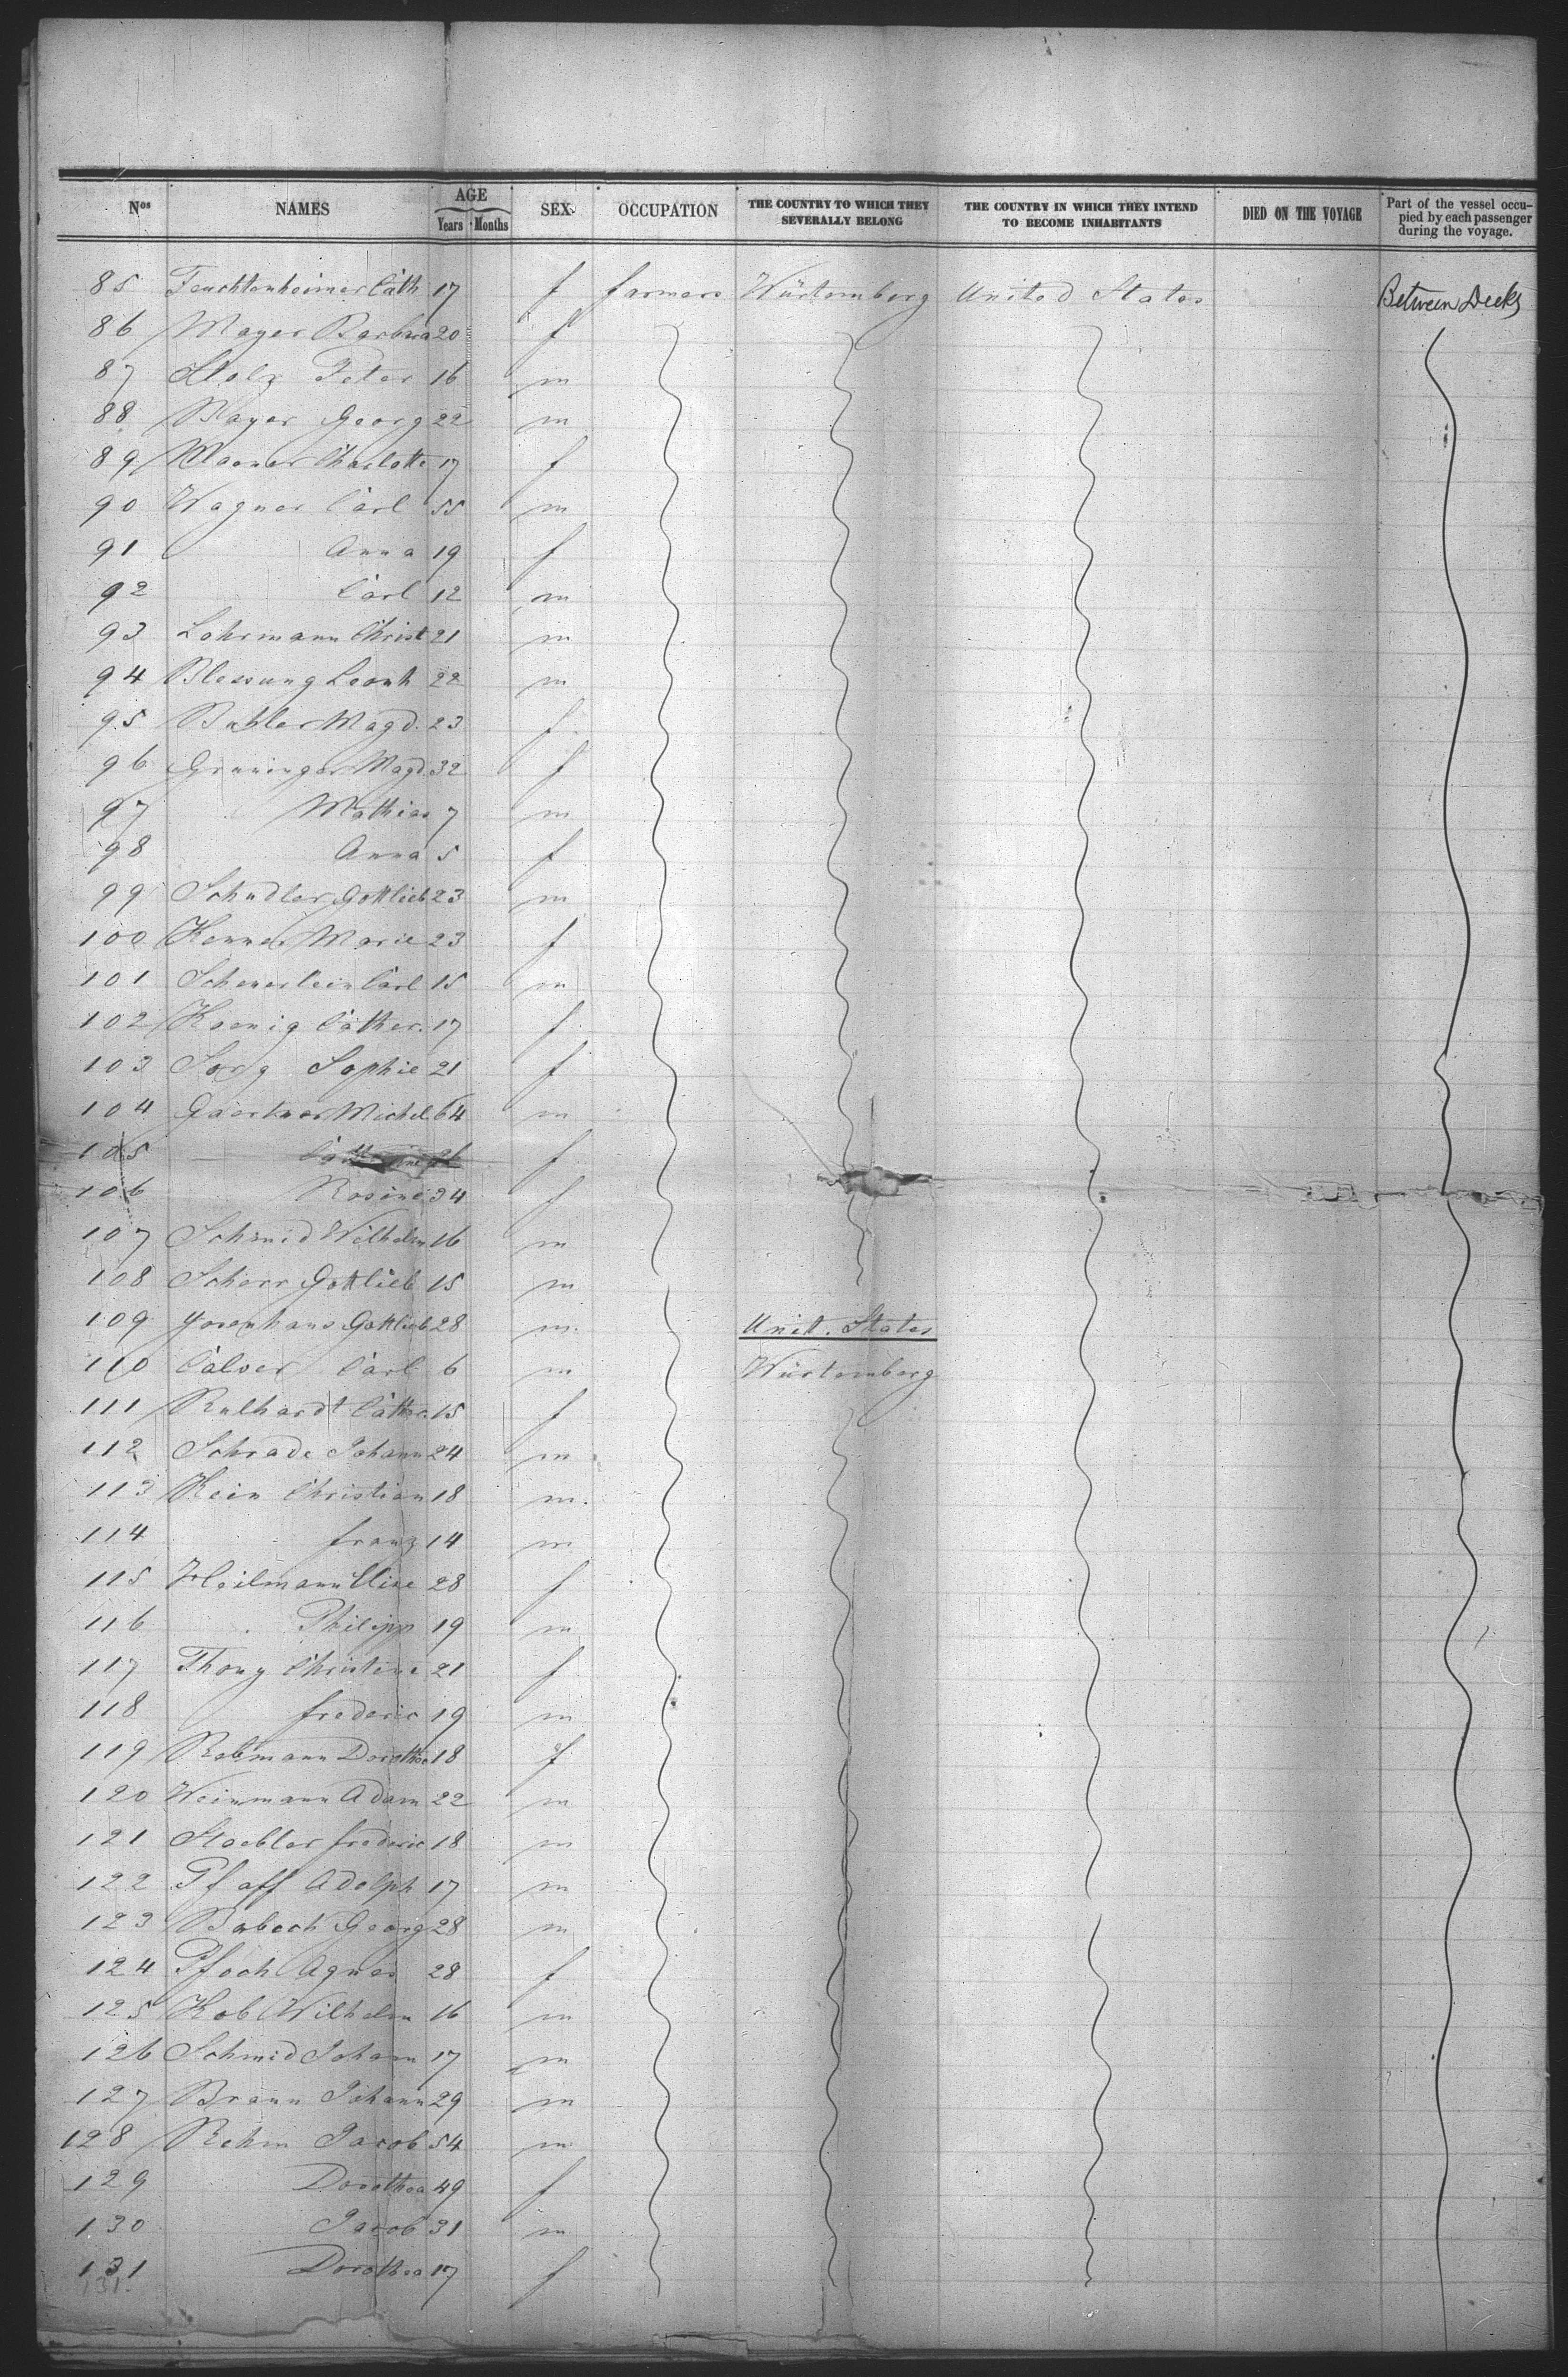 Nos NAMES AGE Years Months SEX OCCUPATION THE COUNTRY TO WHICH THEY SEVERALLY BELONG THE COUNTRY IN WHICH THEY INTEND TO BECOME INHABITANTS DIED ON THE VOYAGE Part of the vessel occupied by each passenger during the voyage.
85 Feuchtenheimer Cath 17 f farmers Würtemberg United States Between Decks
86 Mayer Barbara 20 f
87 Stolz Peter 16 m
88 Mayer Georg 22 m
89 Charlotte 17 f
90 Wagner Carl 55 m
91 Anna 19 f
92 Carl 12 m
93 Lohrmann Christ 21 m
94 Blessung Leonh 22 m
95 Buhler Magd. 23 f
96 Gruninger Magd. 32 f
97 Mathias 7 m
98 Anna 5 f
99 Schudler Gottlieb 23 m
100 Kenner Marie 23 f
101 Scheuerlein Carl 15 m
102 Koenig Cather. 17 f
103 Sorg Sophie 21 f
104 Gaertner Michel 64 m
105 f
106 Rosine 34 f
107 Schmid Wilhelm 16 m
108 Scherr Gottlieb 15 m
109 Josenhans Gottlieb 28 m. Unit. States
110 Calver Carl 6 m Würtemberg
111 Rulhardt Cather. 15 f
112 Schrade Johann 24 m
113 Kein Christian 18 m.
114 franz 14 m
115 Heilmann Elise 28 f
116 Philipp 19 m
117 Thony Christine 21 f
118 frederic 19 m
119 Rebmann Dorothea 18 f
120 Weinmann Adam 22 m
121 Staebler frederic 18 m
122 Pfaff Adolph 17 m
123 Georg 28 m
124 Pfoch Agnes 28 f
125 Kob Wilhelm 16 m
126 Schmid Johann 17 m
127 Braun Johann 29 m
128 Rehm Jacob 54 m
129 Dorothea 49 f
130 Jacob 31 m
131 Dorothea 17 f
131.